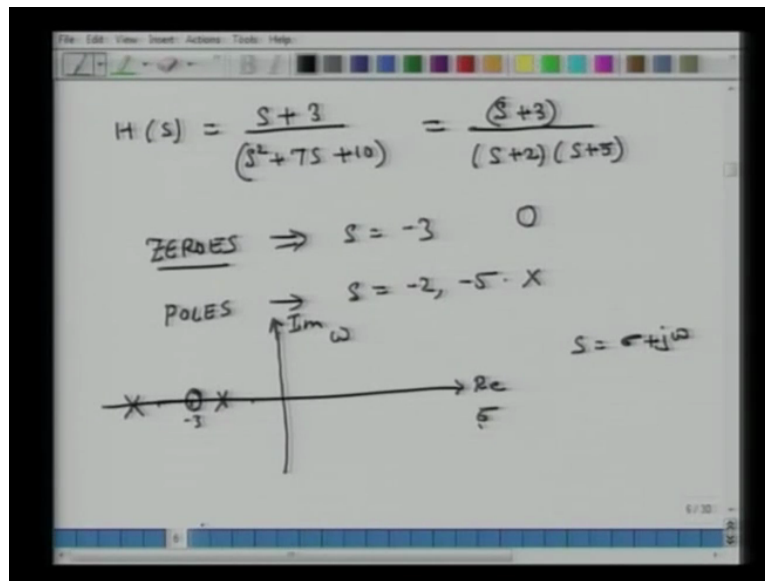 File Edit View Insert Actions Tools Help
H(s) = \frac{s+3}{(s^2+7s+10)} = \frac{(s+3)}{(s+2)(s+5)}
ZEROES ⇒ s = -3 O
POLES → s = -2, -5. X
Im ω
s = σ+jω
Re
-3
σ
6/30
6